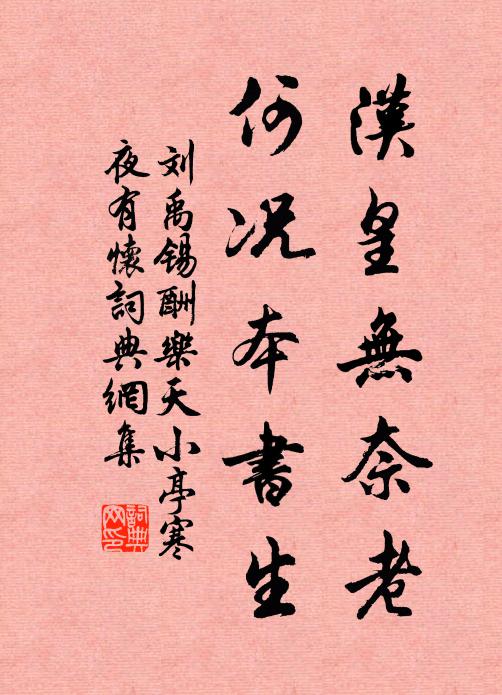 漢皇無奈老
何況本書生
刘禹锡酬樂天小亭寒
夜有懷詞典網集
詞典
网印